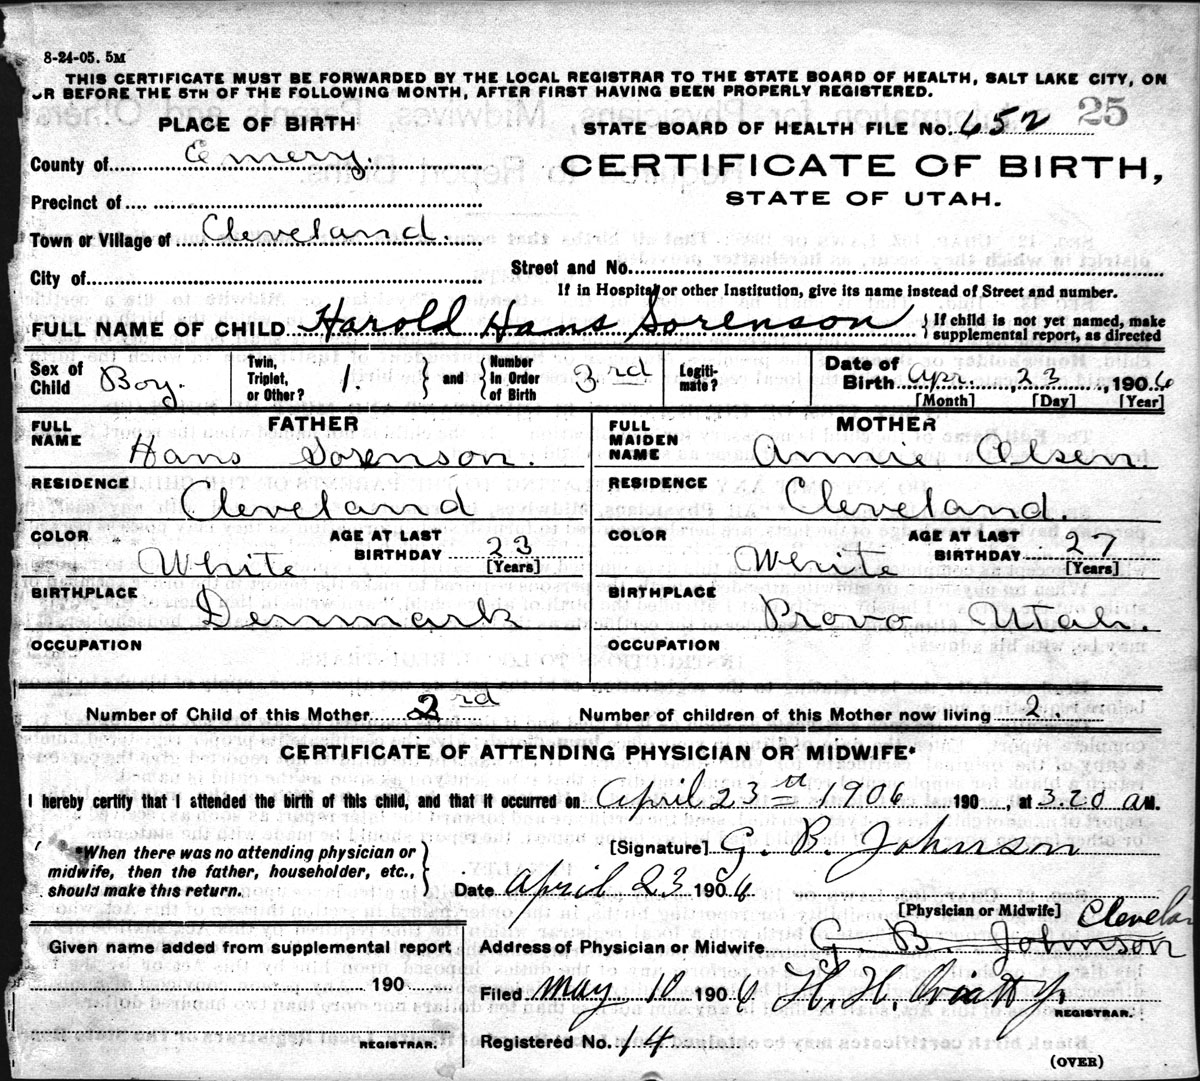 8-24-05. 5M
THIS CERTIFICATE MUST BE FORWARDED BY THE LOCAL REGISTRAR TO THE STATE BOARD OF HEALTH, SALT LAKE CITY, ON
OR BEFORE THE 5TH OF THE FOLLOWING MONTH, AFTER FIRST HAVING BEEN PROPERLY REGISTERED.
PLACE OF BIRTH
STATE BOARD OF HEALTH FILE No. 652 25
County of Emery.
CERTIFICATE OF BIRTH,
STATE OF UTAH.
Precinct of
Town or Village of Cleveland.
City of
Street and No.
If in Hospital or other Institution, give its name instead of Street and number.
FULL NAME OF CHILD Harold Hans Sorenson { If child is not yet named, make supplemental report, as directed
Sex of Child Boy. Twin, Triplet, or Other? 1. } and { Number in Order of Birth 2rd Legiti-mate? Date of Birth Apr. 23, 1906
[Month] [Day] [Year]
FATHER MOTHER
FULL NAME Hans Sorenson. FULL MAIDEN NAME Annie Olsen.
RESIDENCE Cleveland RESIDENCE Cleveland.
COLOR White AGE AT LAST BIRTHDAY 23 [Years] COLOR White AGE AT LAST BIRTHDAY 27 [Years]
BIRTHPLACE Denmark BIRTHPLACE Provo Utah.
OCCUPATION OCCUPATION
Number of Child of this Mother 2rd Number of children of this Mother now living 2.
CERTIFICATE OF ATTENDING PHYSICIAN OR MIDWIFE*
I hereby certify that I attended the birth of this child, and that it occurred on April 23th 1906 190 , at 3.20 a M.
*When there was no attending physician or midwife, then the father, householder, etc., should make this return. }
[Signature] G. B. Johnson
Date April 23 1906
[Physician or Midwife] Clevelan
Given name added from supplemental report
190
REGISTRAR.
Address of Physician or Midwife G. B. Johnson
Filed May 10 1906 H. H.
REGISTRAR.
Registered No. 14
(OVER)